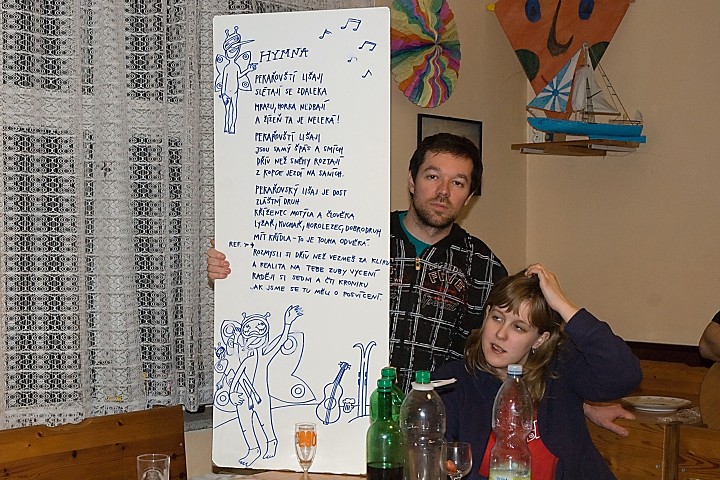 HYMNA
PEKAŘOVŠTÍ LIŠAJI
SLÉTAJÍ SE ZDALEKA
MRAZU, HORKA NEDBAJÍ
A ŽÍZEŇ TA JE NELEKÁ!
PEKAŘOVŠTÍ LIŠAJI
JSOU SAMÝ ŠPÁS A SMÍCH
DŘÍV NEŽ SNĚHY ROZTAJÍ
Z KOPCE JEZDÍ NA SANÍCH.
PEKAŘOVSKÝ LIŠAJ JE DOST
ZLÁŠTNÍ DRUH
KŘÍŽENEC MOTÝLA A ČLOVĚKA
LYŽAŘ, KUCHAŘ, HOROLEZEC, DOBRODRUH
MÍT KŘÍDLA - TO JE TOUHA ODVĚKÁ.
REF.
ROZMYSLI SI DŘÍV NEŽ VEZMEŠ ZA KLIKU
A REALITA NA TEBE ZUBY VYCENÍ
RADĚJI SI SEDNI A ČTI KRONIKU
JAK JSME SE TU MĚLI O POSVÍCENÍ.